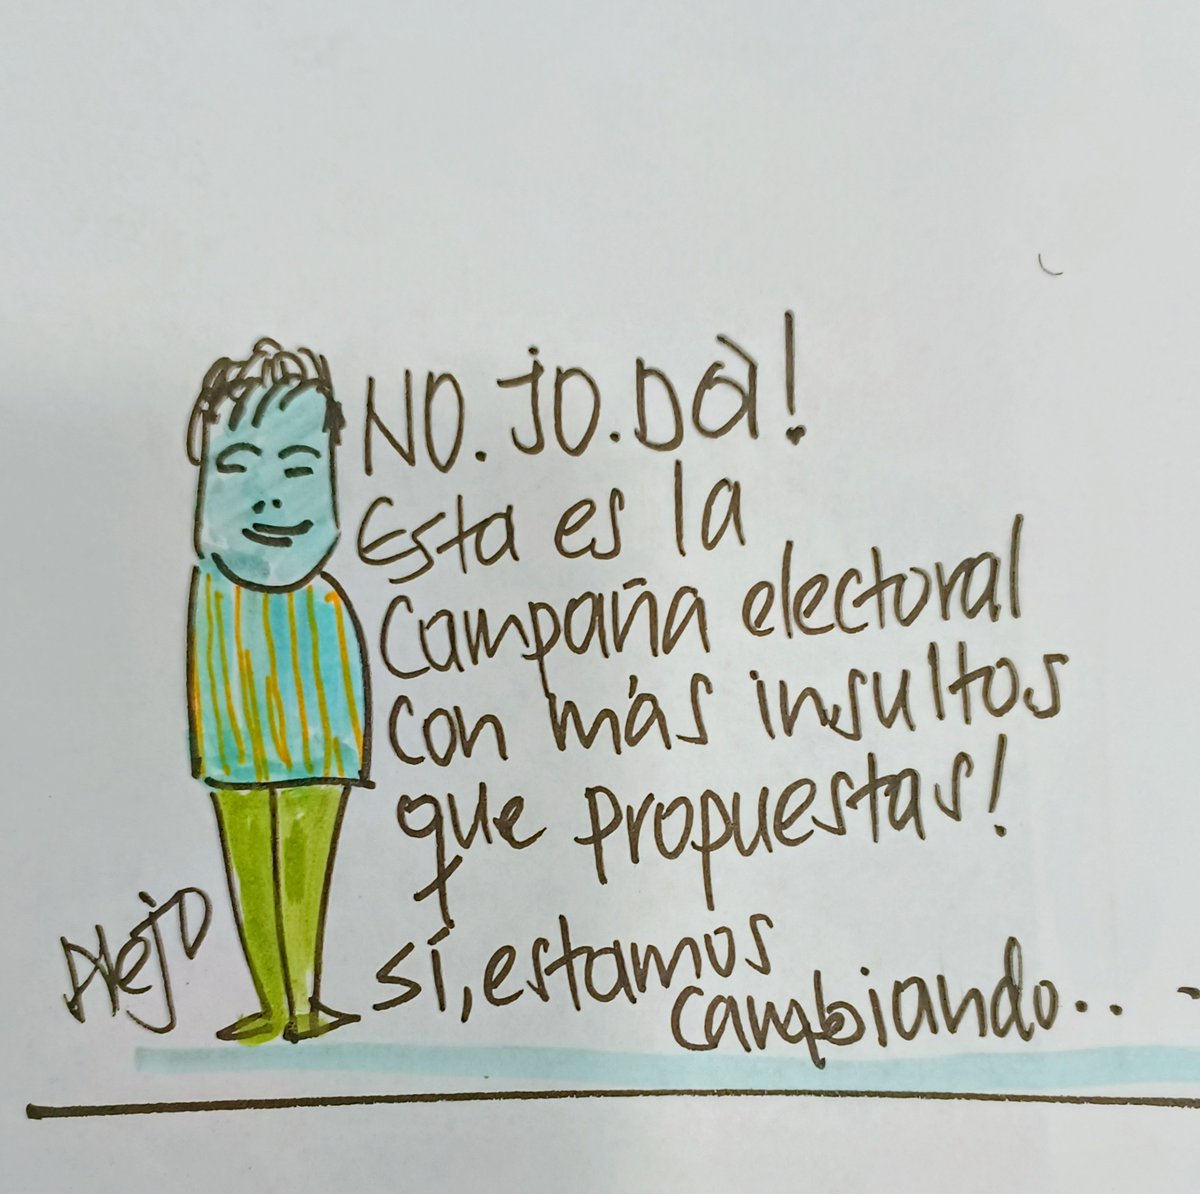 NO.JO.Da!
Esta es la
Campaña electoral
con más insultos
que propuestas!
+
sí, estamos
cambiando...
Alejo